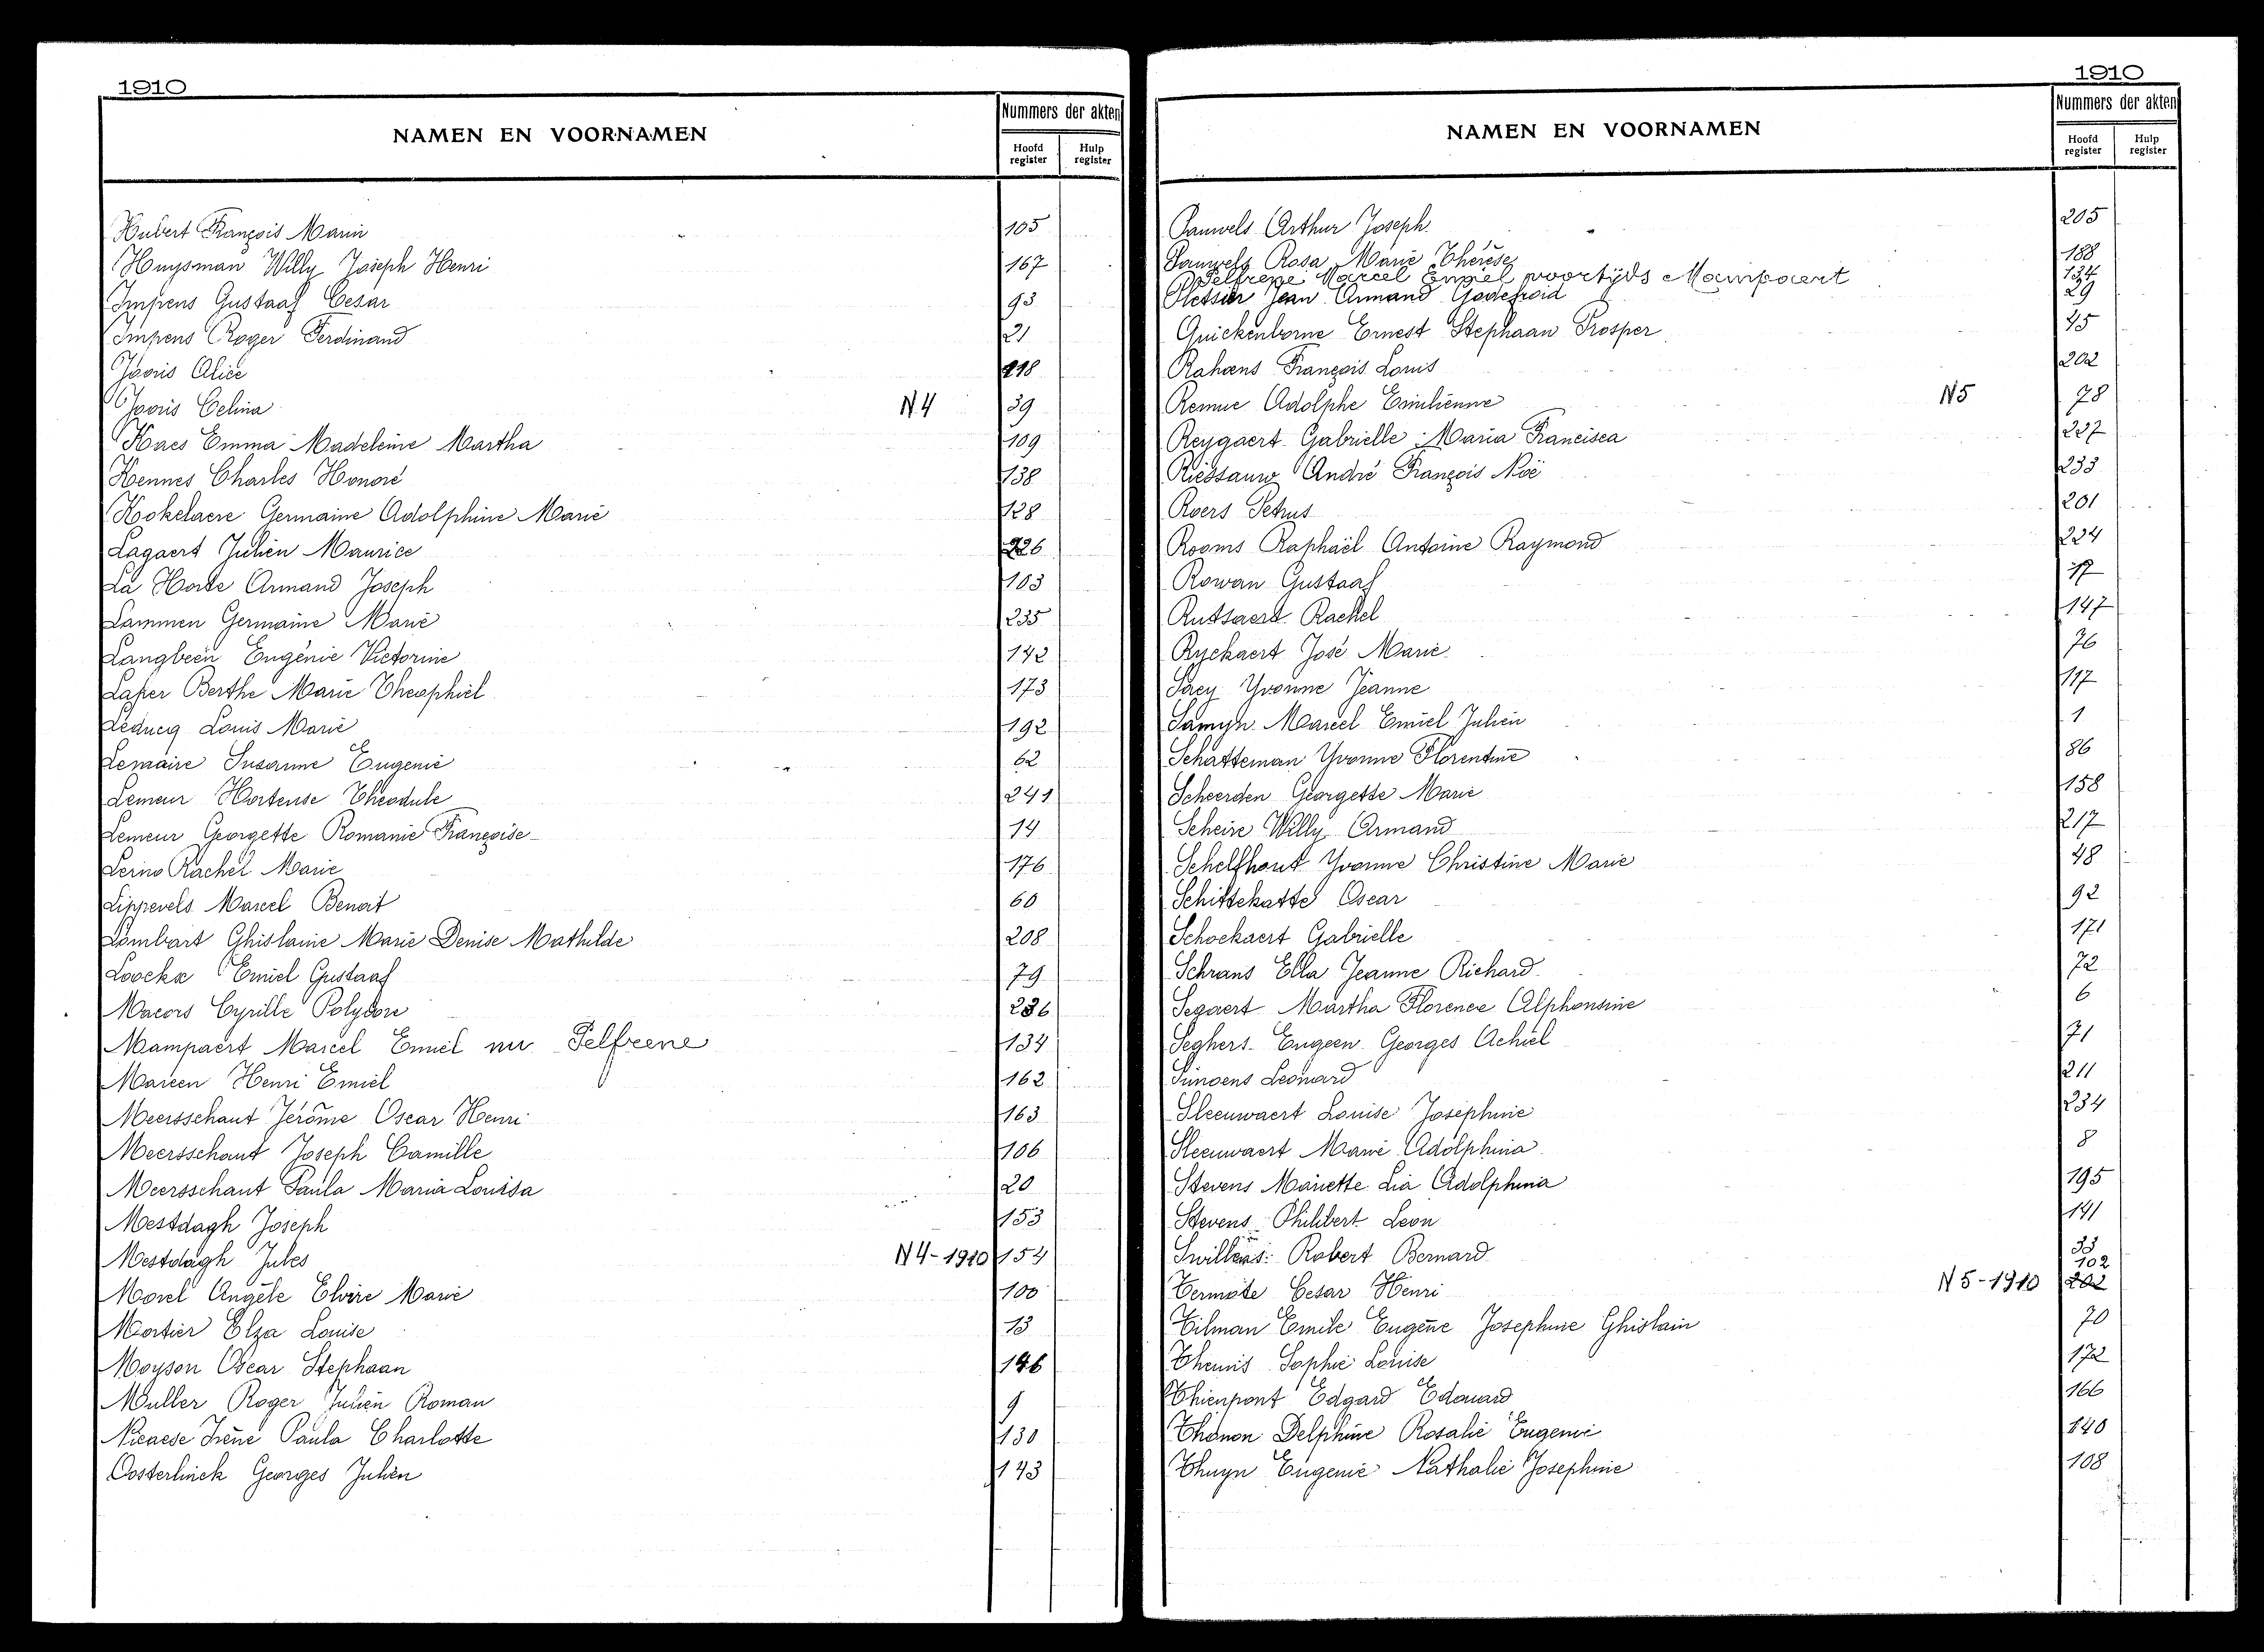 1910
NAMEN EN VOORNAMEN
Nummers der akten
Hoofd register
Hulp register
Hubert François Marin 105
Huysman Willy Joseph Henri 167
Impens Gustaaf Cesar 93
Impens Roger Ferdinand 21
Jooris Alice 218
Jooris Celina N4 39
Kaes Emma Madeleine Martha 109
Kennes Charles Honoré 138
Kokelaere Germaine Adolphine Marie 128
Lagaert Julien Maurice 226
La Horte Armand Joseph 103
Lammen Germaine Marie 235
Langbeen Eugénie Victorine 142
Laper Berthe Marie Theophiel 173
Leducq Louis Marie 192
Lemaire Susanne Eugenie 62
Lemeur Hortense Theodule 241
Lemeur Georgette Romanie Françoise 14
Lerno Rachel Marie 176
Lippevels Marcel Benoit 60
Lombart Ghislaine Marie Denise Mathilde 208
Loockx Emiel Gustaaf 79
Macors Cyrille Polydore 236
Mampaert Marcel Emiel nu Pelfrene 134
Mareen Henri Emiel 162
Meersschaut Jérôme Oscar Henri 163
Meersschaut Joseph Camille 106
Meersschaut Paula Maria Louisa 20
Mestdagh Joseph 153
Mestdagh Jules N4-1910 154
Morel Angèle Elvire Marie 100
Mortier Elza Louise 13
Moyson Oscar Stephaan 146
Muller Roger Julien Roman 9
Nicaese Irène Paula Charlotte 130
Oosterlinck Georges Julien 143
1910
NAMEN EN VOORNAMEN
Nummers der akten
Hoofd register
Hulp register
Pauwels Arthur Joseph 205
Pauwels Rosa Marie Thérèse 188
Pelfrene Marcel Emiel voortijds Mampaert 134
Pletsier Jean Armand Godefroid 29
Quickenborne Ernest Stephaan Prosper 45
Rahoens François Louis 202
Remue Adolphe Emilienne N5 78
Reygaert Gabrielle Maria Francisca 227
Riessauw André François Noë 233
Roers Petrus 201
Rooms Raphaël Antoine Raymond 224
Rowan Gustaaf 17
Rutsaert Rachel 147
Ryckaert José Marie 76
Saey Yvonne Jeanne 117
Samyn Marcel Emiel Julien 1
Schatteman Yvonne Florentine 86
Scheerden Georgette Marie 158
Scheire Willy Armand 217
Schelfhout Yvonne Christine Marie 48
Schittekatte Oscar 92
Schockaert Gabrielle 171
Schrans Ella Jeanne Richard 72
Segaert Martha Florence Alphonsine 6
Seghers Eugeen Georges Achiel 71
Simoens Leonard 211
Sleeuwaert Louise Josephine 234
Sleeuwaert Marie Adolphina 8
Stevens Mariette Lia Adolphina 195
Stevens Philibert Leon 141
Swillens Robert Bernard 33
102
Vermote Cesar Henri N5-1910 202
Tilman Emile Eugène Josephine Ghislain 70
Theunis Sophie Louise 172
Thienpont Edgard Edouard 166
Thonon Delphine Rosalie Eugenie 140
Thuyn Eugenie Nathalie Josephine 108